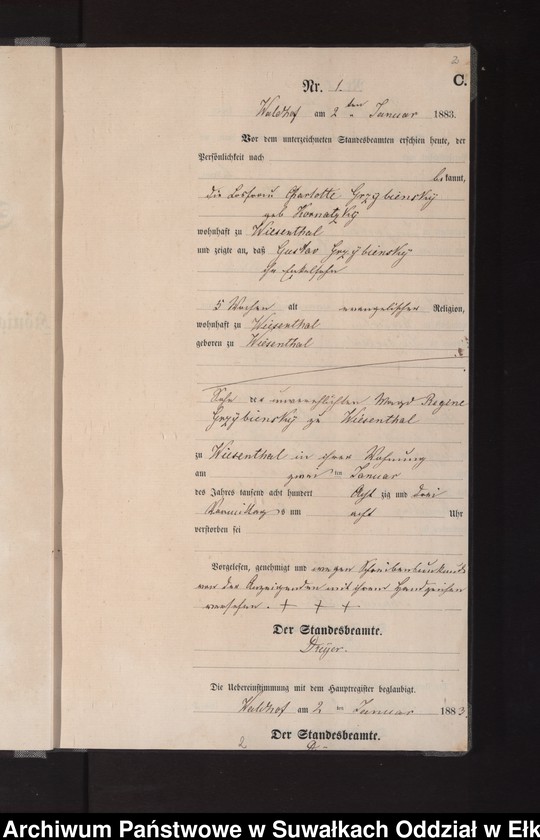 2
C.
Nr. 1.
Waldhof am 2 ten Januar 1883.
Vor dem unterzeichneten Standesbeamten erschien heute, der
Persönlichkeit nach
bekannt,
die Losfrau Charlotte Grzybiensky
geb Kornatzky
wohnhaft zu Wiesenthal
und zeigte an, daß Gustav Grzybiensky
ihr Enkelsohn
5 Wochen alt evangelischer Religion,
wohnhaft zu Wiesenthal
geboren zu Wiesenthal
Sohn der unverehlichten Magd Regine
Grzybiensky zu Wiesenthal
zu Wiesenthal in ihrer Wohnung
am zwei ten Januar
des Jahres tausend acht hundert Acht zig und drei
Vormittags um acht Uhr
verstorben sei
Vorgelesen, genehmigt und wegen Schreibensunkunde
von der Anzeigenden mit ihrem Handzeichen
versehen. + + +
Der Standesbeamte.
Dreyer.
Die Uebereinstimmung mit dem Hauptregister beglaubigt.
Waldhof am 2 ten Januar 1883.
Der Standesbeamte.
2
Archiwum Państwowe w Suwałkach Oddział w Ełk